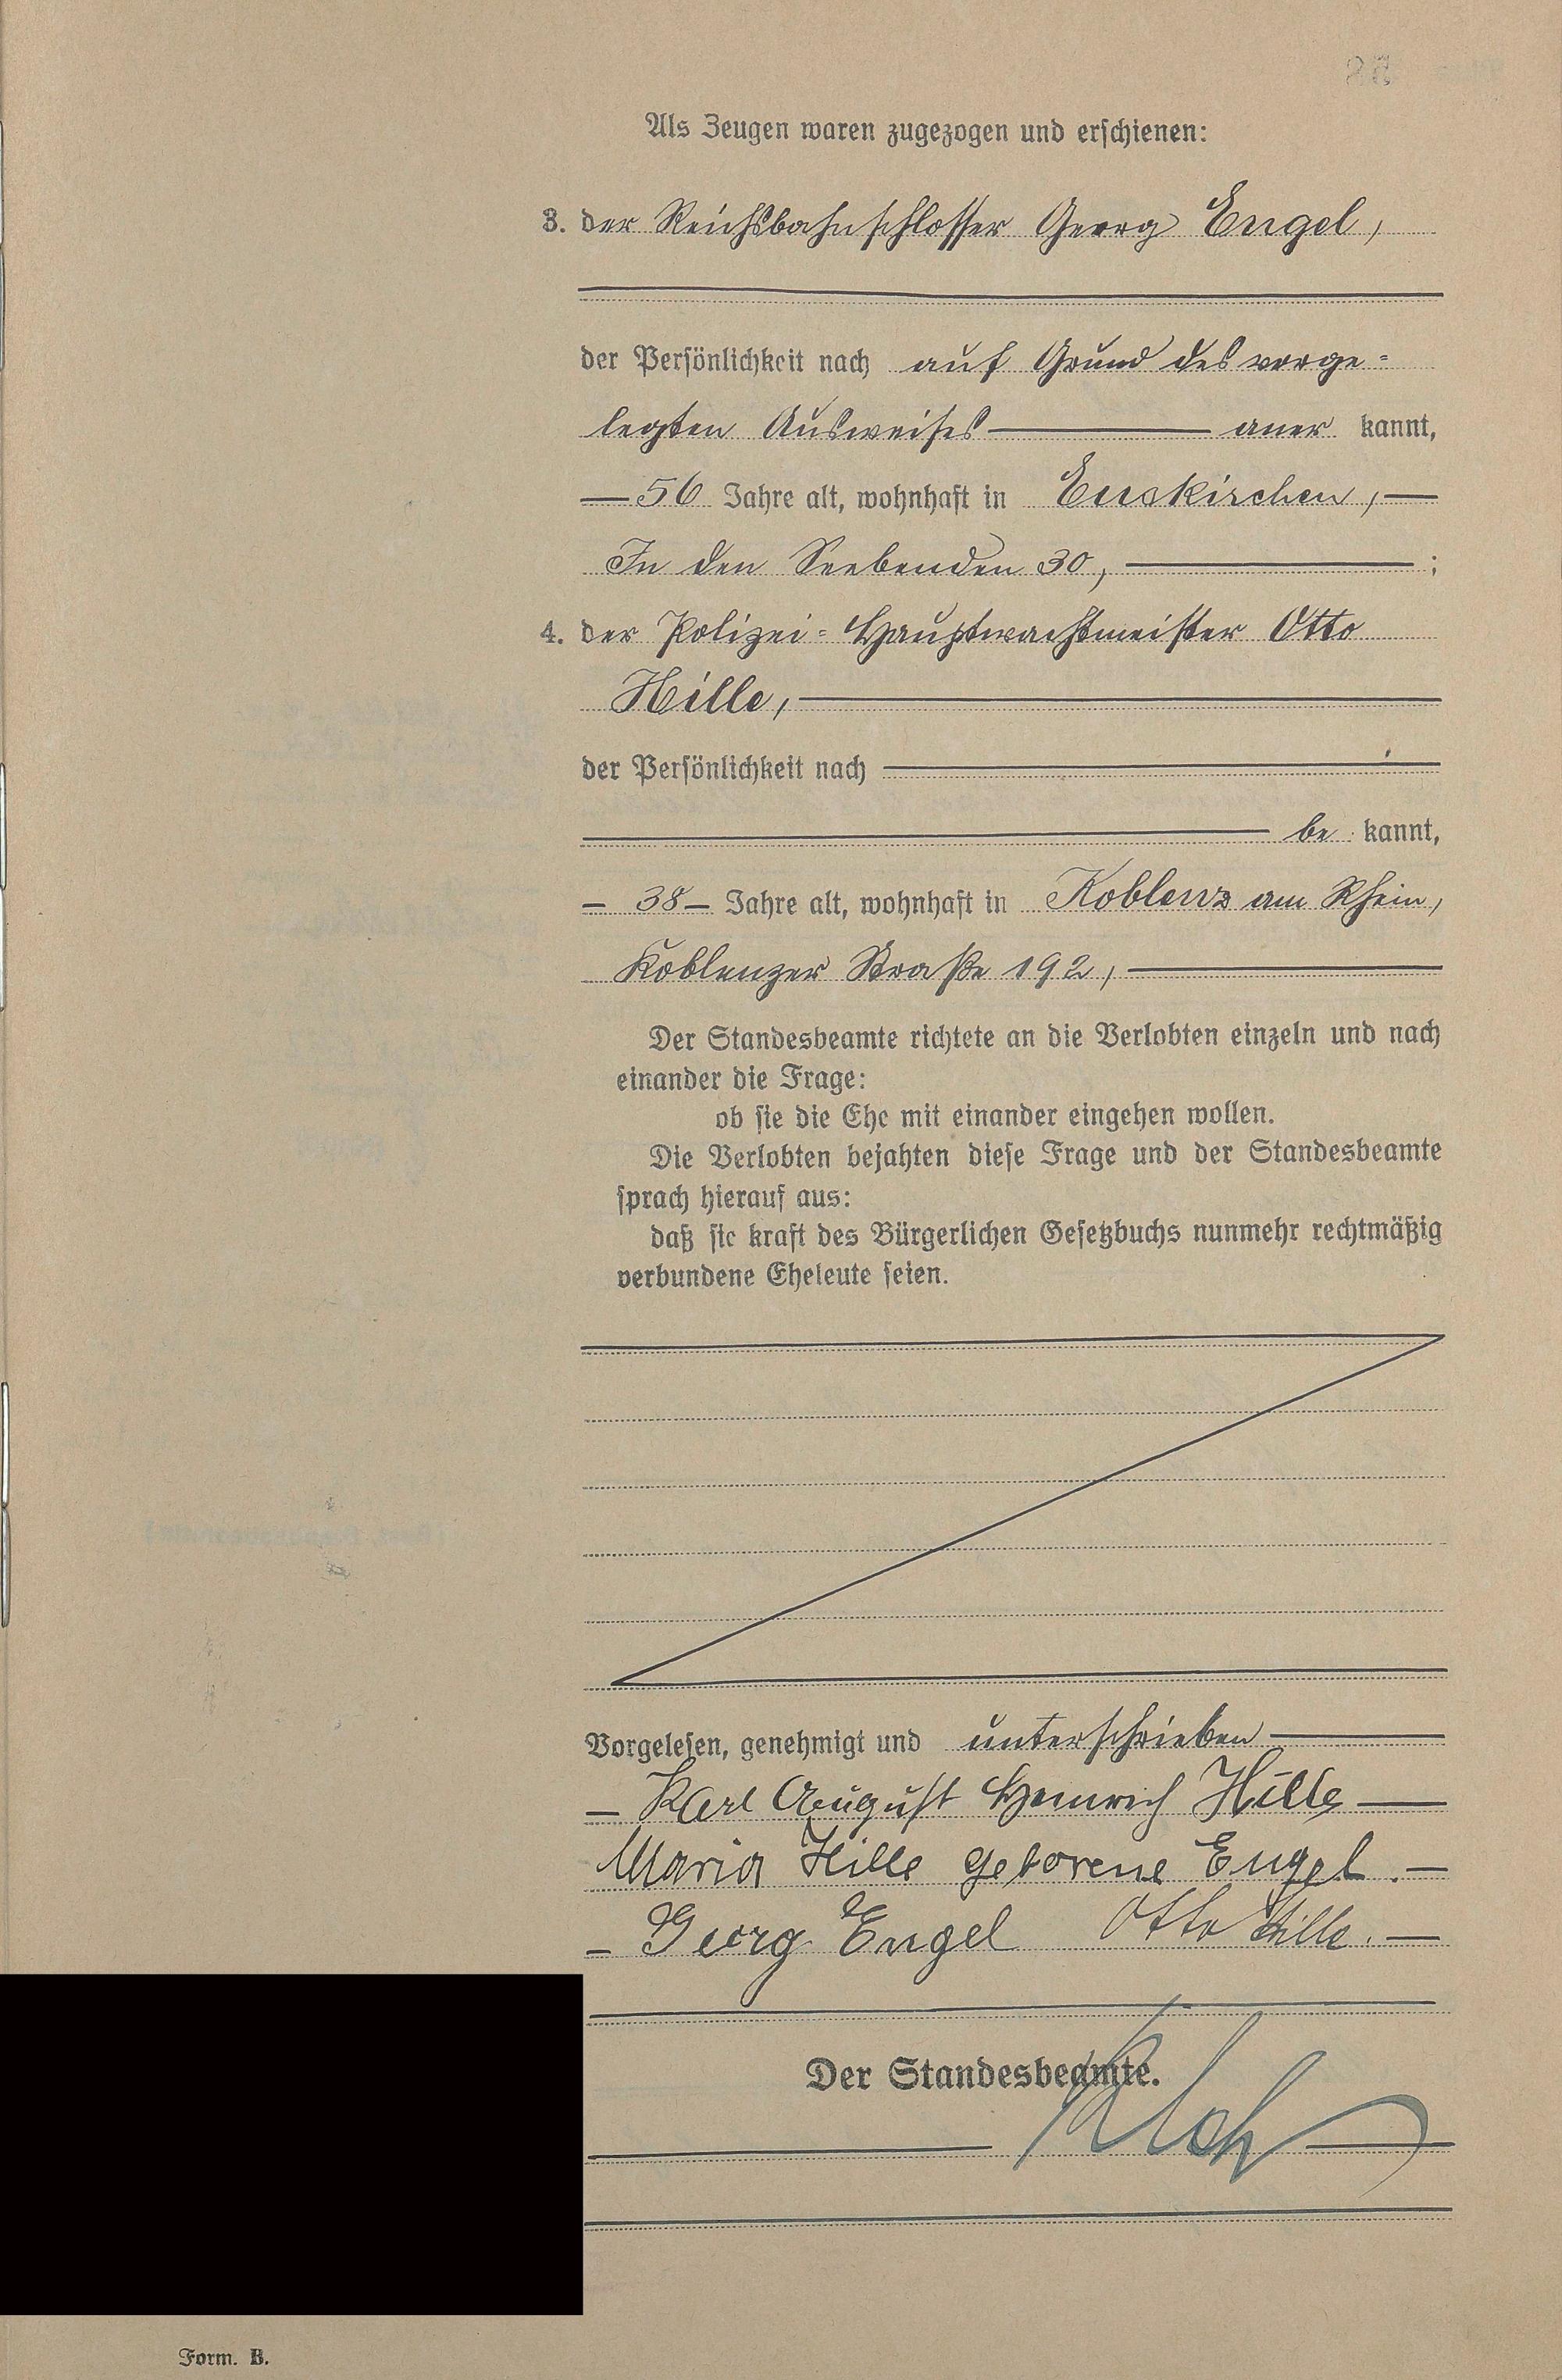 Als Zeugen waren zugezogen und erschienen:
3. der Reichsbahnschlosser Georg Engel,
der Persönlichkeit nach auf Grund des vorge=
legten Ausweises aner kannt,
56 Jahre alt, wohnhaft in Euskirchen,
In den Seebenden 30, ;
4. der Polizei=Hauptwachtmeister Otto
Hille,
der Persönlichkeit nach
be kannt,
38 Jahre alt, wohnhaft in Koblenz am Rhein,
Koblenzer Straße 192,
Der Standesbeamte richtete an die Verlobten einzeln und nach
einander die Frage:
ob sie die Ehe mit einander eingehen wollen.
Die Verlobten bejahten diese Frage und der Standesbeamte
sprach hierauf aus:
daß sie kraft des Bürgerlichen Gesetzbuchs nunmehr rechtmäßig
verbundene Eheleute seien.
Vorgelesen, genehmigt und unterschrieben
Karl August Heinrich Hille
Maria Hille geborene Engel.
Georg Engel Otto Hille.
Der Standesbeamte.
Form. B.